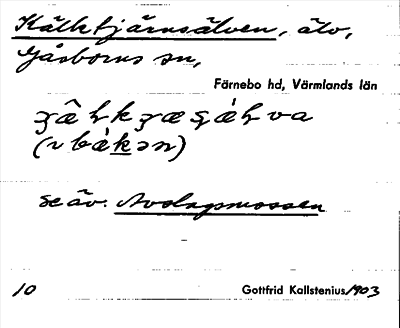 Kälktjärnsälven, älv,
Gåsborns sn,
Färnebo hd, Värmlands län
se äv. Avslagsmossen
10
Gottfrid Kallstenius 1903